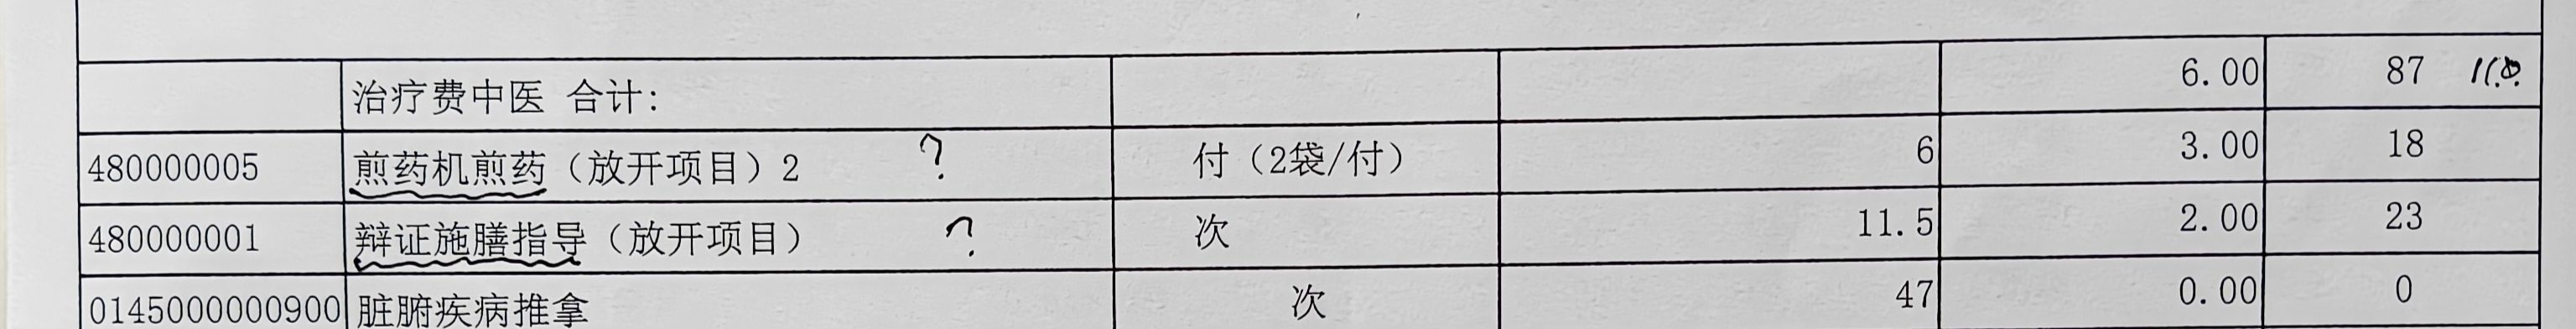 治疗费中医 合计: 6.00 87
480000005 煎药机煎药（放开项目）2 ? 付（2袋/付） 6 3.00 18
480000001 辩证施膳指导（放开项目） ? 次 11.5 2.00 23
0145000000900 脏腑疾病推拿 次 47 0.00 0